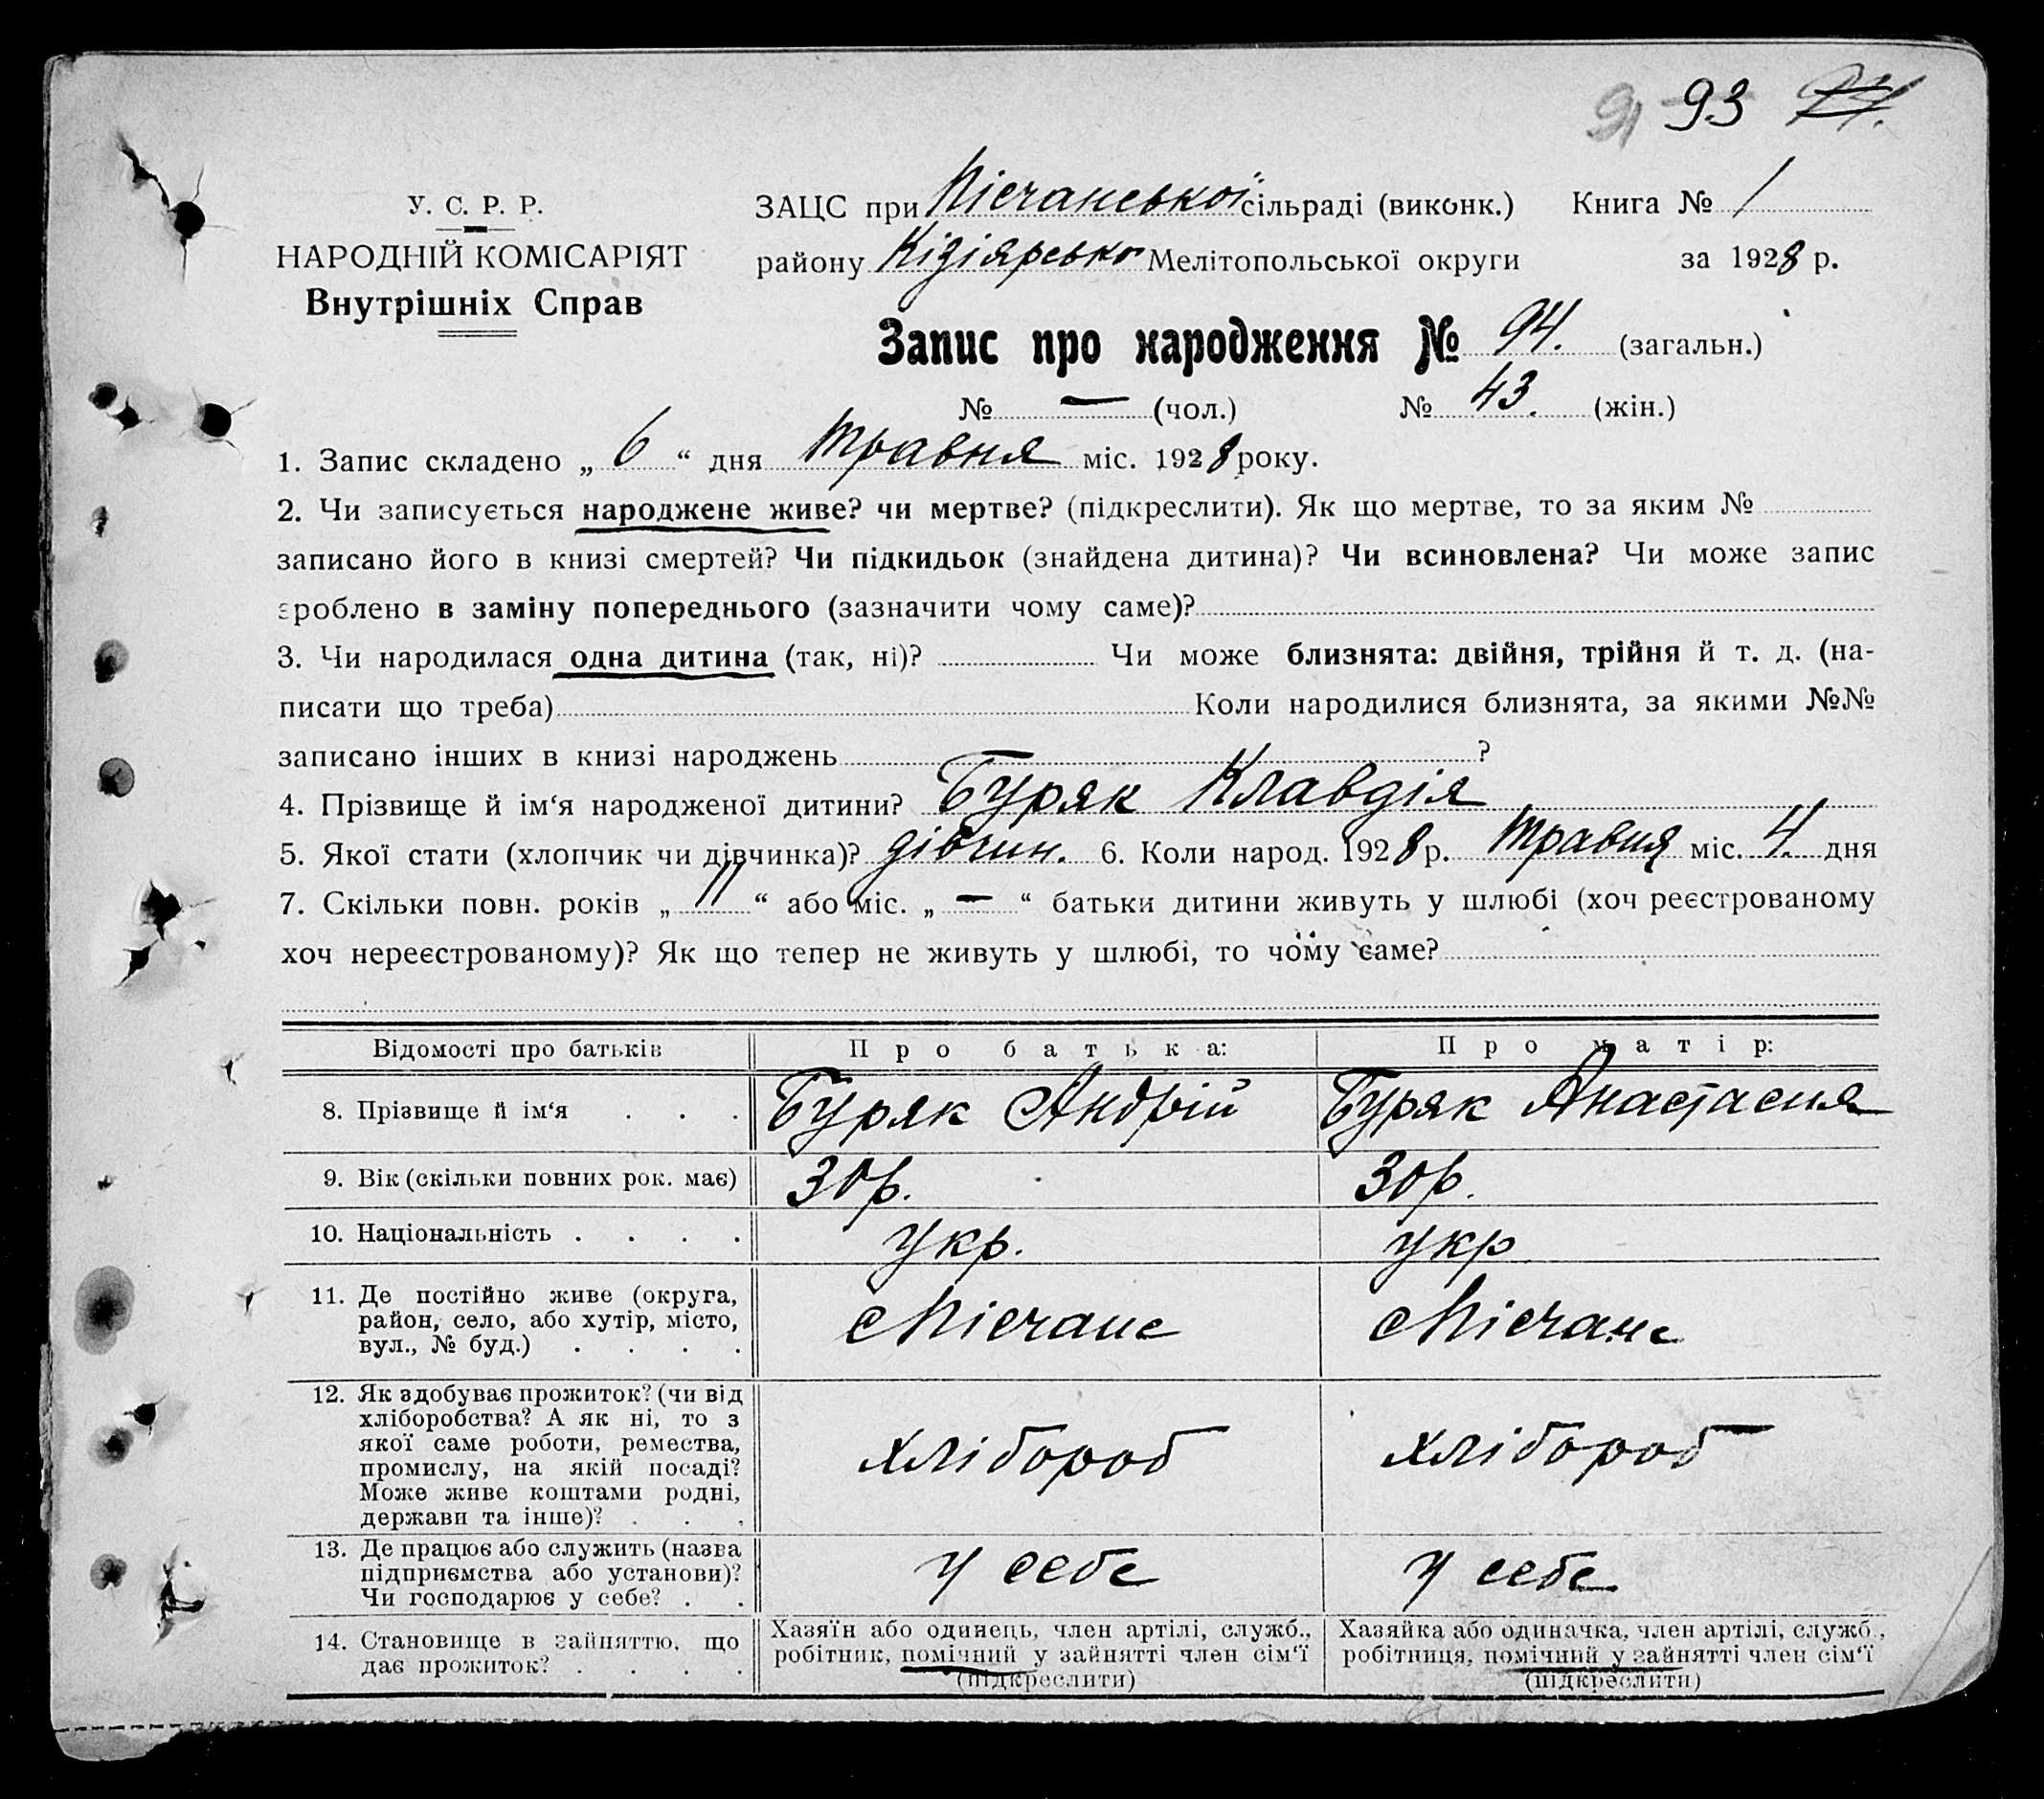 93
У. С. Р. Р.
НАРОДНІЙ КОМІСАРІЯТ
Внутрішніх Справ
ЗАЦС при Пісчанської сільраді (виконк.) Книга № 1
району Кізіярсько Мелітопольської округи за 1928 р.
Запис про народження № 94. (загальн.)
№ — (чол.) № 43. (жін.)
1. Запис складено „ 6 “ дня травня міс. 1928 року.
2. Чи записується народжене живе? чи мертве? (підкреслити). Як що мертве, то за яким №
записано його в книзі смертей? Чи підкидьок (знайдена дитина)? Чи всиновлена? Чи може запис
зроблено в заміну попереднього (зазначити чому саме)?
3. Чи народилася одна дитина (так, ні)? Чи може близнята: двійня, трійня й т. д. (на-
писати що треба) Коли народилися близнята, за якими №№
записано інших в книзі народжень ?
4. Прізвище й ім‘я народженої дитини? Буряк Клавдія
5. Якої стати (хлопчик чи дівчинка)? дівчин. 6. Коли народ. 1928 р. травня міс. 4. дня
7. Скільки повн. років „ 11 “ або міс. „ — “ батьки дитини живуть у шлюбі (хоч реєстрованому
хоч нереєстрованому)? Як що тепер не живуть у шлюбі, то чому саме?
Відомості про батьків Про батька: Про матір:
8. Прізвище й ім‘я . . . Буряк Андрій Буряк Анастасия
9. Вік (скільки повних рок. має) 30 р. 30 р.
10. Національність . . . . укр. укр
11. Де постійно живе (округа,
район, село, або хутір, місто,
вул., № буд.) . . . .
с Пісчане с Пісчане
12. Як здобуває прожиток? (чи від
хліборобства? А як ні, то з
якої саме роботи, ремества,
промислу, на якій посаді?
Може живе коштами родні,
держави та інше)? . . .
хлібороб хлібороб
13. Де працює або служить (назва
підприємства або установи)?
Чи господарює у себе? . .
у себе у себе
14. Становище в зайняттю, що
дає прожиток? . . . .
Хазяїн або одинець, член артілі, служб.,
робітник, помічний у зайнятті член сім‘ї
(підкреслити)
Хазяйка або одиначка, член артілі, служб.,
робітниця, помічний у зайнятті член сім‘ї
(підкреслити)